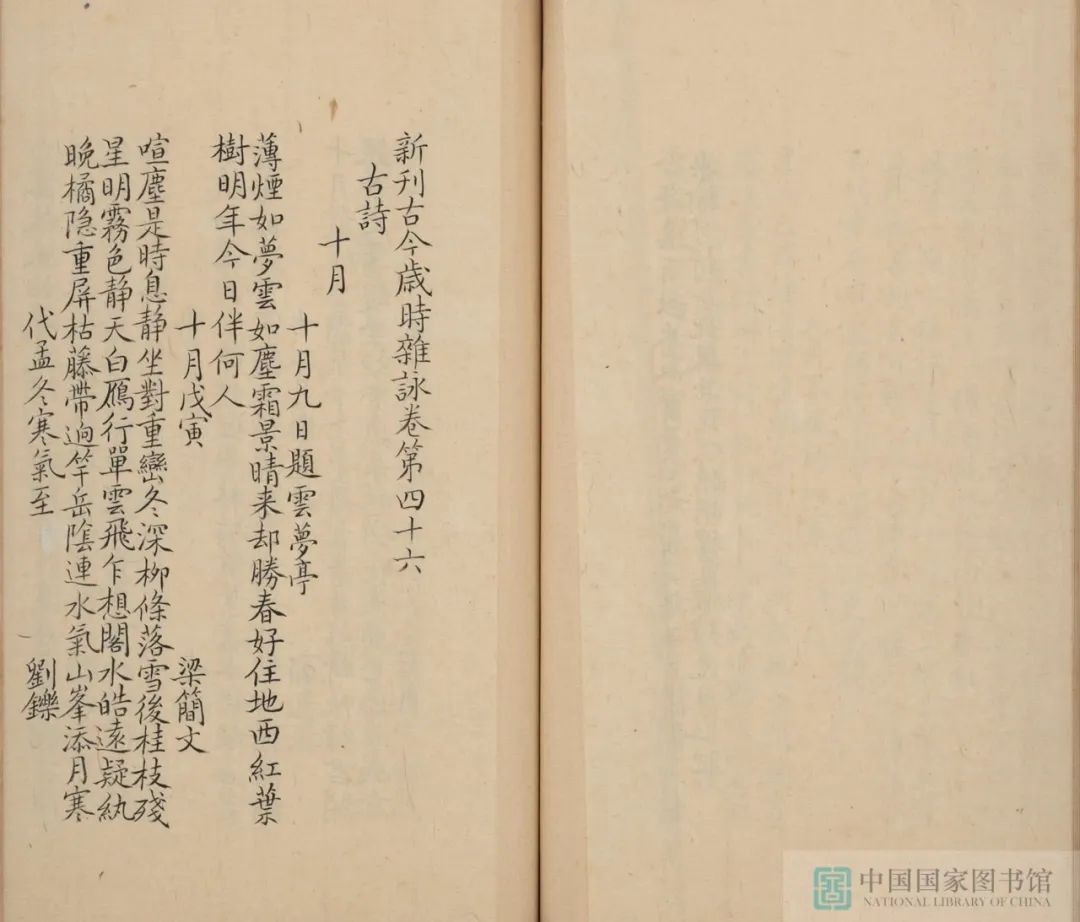 新刊古今歲時雜詠卷第四十六
古詩
十月
十月九日題雲夢亭
薄煙如夢雲如塵霜景晴来却勝春好住池西紅葉
樹明年今日伴何人
十月戊寅 梁簡文
喧塵是時息静坐對重巒冬深柳條落雪後桂枝殘
星明霧色静天白鴈行單雲飛乍想閣水皓遠疑紈
晚橘隐重屏枯藤帶迥竿岳陰連水氣山峯添月寒
代孟冬寒氣至 劉鑠
中国国家图书馆
NATIONAL LIBRARY OF CHINA